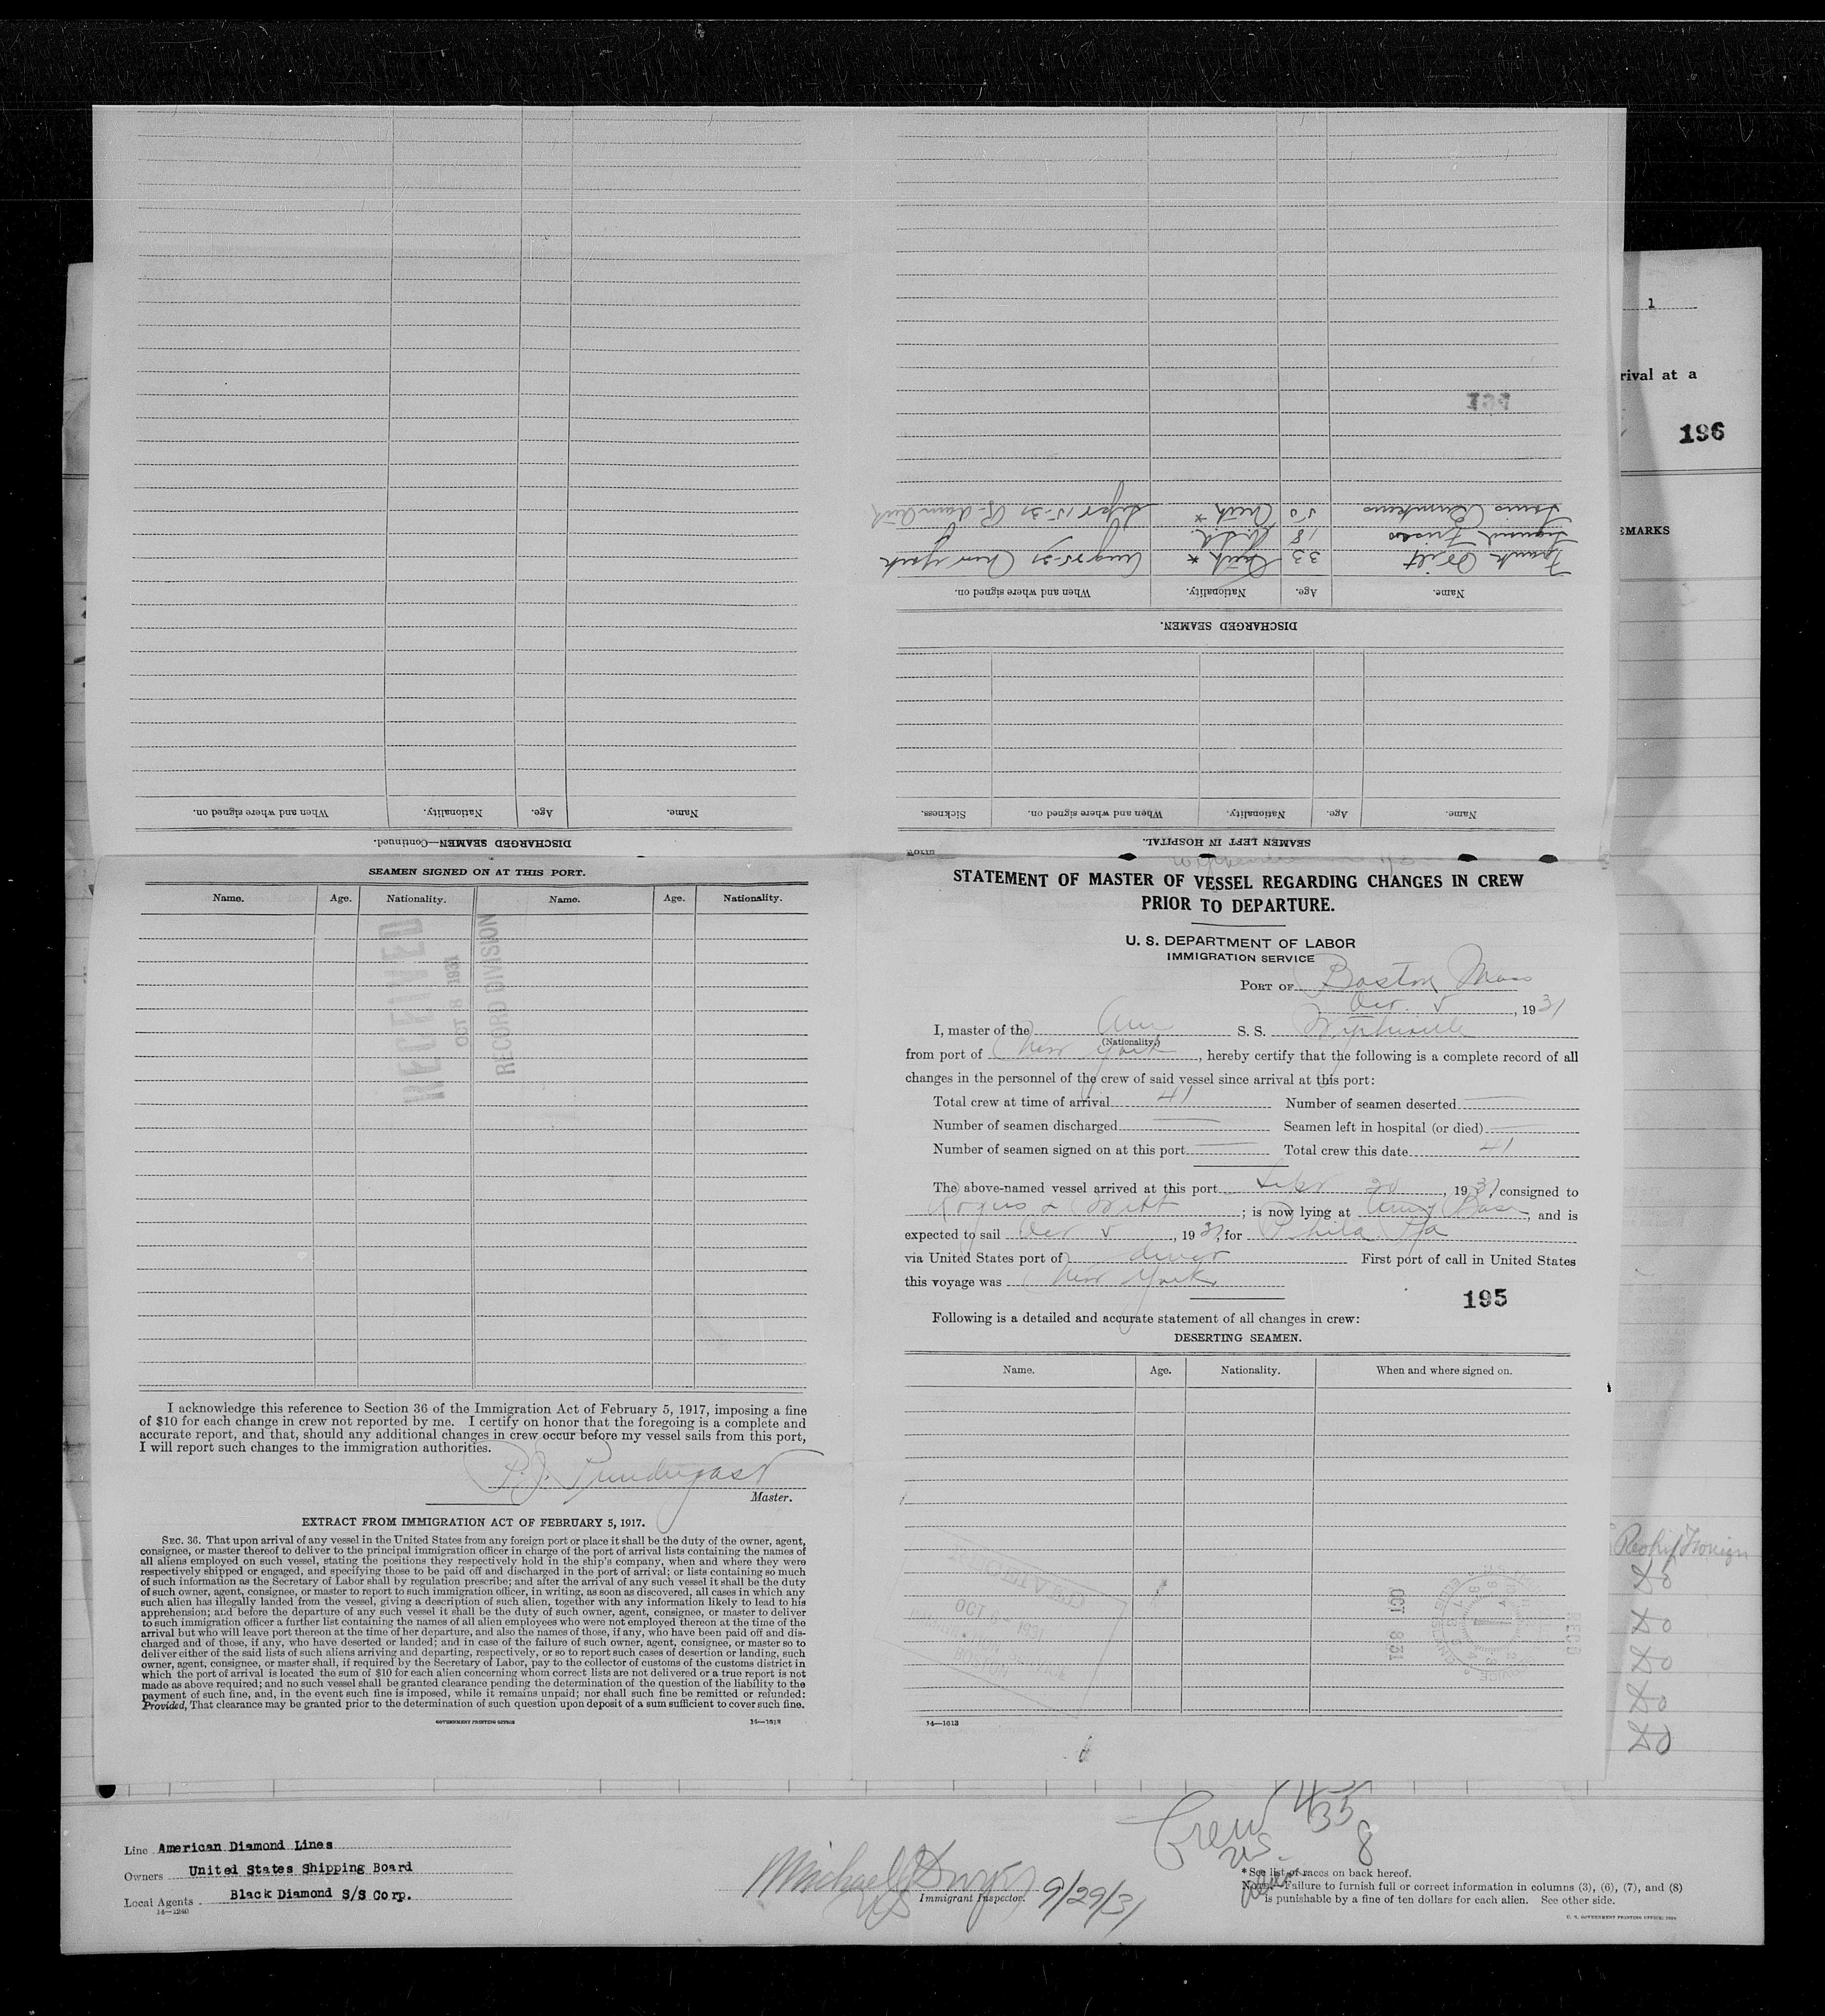 1
rival at a
196
EMARKS
DISCHARGED SEAMEN—Continued.
Name. Age. Nationality. When and where signed on.
SEAMEN LEFT IN HOSPITAL.
Name. Age. Nationality. When and where signed on. Sickness.
DISCHARGED SEAMEN.
Name. Age. Nationality. When and where signed on.
Frank 33 * Aug 25-31 New York
18
Louis 50 * Sept 15-31
SEAMEN SIGNED ON AT THIS PORT.
Name. Age. Nationality. Name. Age. Nationality.
RECEIVED
OCT 8 1931
RECORD DIVISION
I acknowledge this reference to Section 36 of the Immigration Act of February 5, 1917, imposing a fine
of $10 for each change in crew not reported by me. I certify on honor that the foregoing is a complete and
accurate report, and that, should any additional changes in crew occur before my vessel sails from this port,
I will report such changes to the immigration authorities.
P. J. Prendergast
Master.
EXTRACT FROM IMMIGRATION ACT OF FEBRUARY 5, 1917.
SEC. 36. That upon arrival of any vessel in the United States from any foreign port or place it shall be the duty of the owner, agent,
consignee, or master thereof to deliver to the principal immigration officer in charge of the port of arrival lists containing the names of
all aliens employed on such vessel, stating the positions they respectively hold in the ship's company, when and where they were
respectively shipped or engaged, and specifying those to be paid off and discharged in the port of arrival; or lists containing so much
of such information as the Secretary of Labor shall by regulation prescribe; and after the arrival of any such vessel it shall be the duty
of such owner, agent, consignee, or master to report to such immigration officer, in writing, as soon as discovered, all cases in which any
such alien has illegally landed from the vessel, giving a description of such alien, together with any information likely to lead to his
apprehension; and before the departure of any such vessel it shall be the duty of such owner, agent, consignee, or master to deliver
to such immigration officer a further list containing the names of all alien employees who were not employed thereon at the time of the
arrival but who will leave port thereon at the time of her departure, and also the names of those, if any, who have been paid off and dis-
charged and of those, if any, who have deserted or landed; and in case of the failure of such owner, agent, consignee, or master so to
deliver either of the said lists of such aliens arriving and departing, respectively, or so to report such cases of desertion or landing, such
owner, agent, consignee, or master shall, if required by the Secretary of Labor, pay to the collector of customs of the customs district in
which the port of arrival is located the sum of $10 for each alien concerning whom correct lists are not delivered or a true report is not
made as above required; and no such vessel shall be granted clearance pending the determination of the question of the liability to the
payment of such fine, and, in the event such fine is imposed, while it remains unpaid; nor shall such fine be remitted or refunded:
Provided, That clearance may be granted prior to the determination of such question upon deposit of a sum sufficient to cover such fine.
GOVERNMENT PRINTING OFFICE 14—1613
STATEMENT OF MASTER OF VESSEL REGARDING CHANGES IN CREW
PRIOR TO DEPARTURE.
U. S. DEPARTMENT OF LABOR
IMMIGRATION SERVICE
PORT OF Boston Mass
Oct. 5, 1931
I, master of the Am S. S. Wytheville
(Nationality.)
from port of New York, hereby certify that the following is a complete record of all
changes in the personnel of the crew of said vessel since arrival at this port:
Total crew at time of arrival 41 Number of seamen deserted
Number of seamen discharged Seamen left in hospital (or died)
Number of seamen signed on at this port Total crew this date 41
The above-named vessel arrived at this port Sept 30, 1931, consigned to
Rogers & Webb; is now lying at Army Base, and is
expected to sail Oct 5, 1931, for Phila Pa
via United States port of direct First port of call in United States
this voyage was New York
195
Following is a detailed and accurate statement of all changes in crew:
DESERTING SEAMEN.
Name. Age. Nationality. When and where signed on.
OCT 8 31
RECD
14—1613
Reship Foreign
Do
Do
Do
Do
Do
Line American Diamond Lines
Owners United States Shipping Board
Local Agents Black Diamond S/S Corp.
14—1240
Immigrant Inspector. 9/29/31
Crew
US 35
8
* See list of races on back hereof.
NOTE.—Failure to furnish full or correct information in columns (3), (6), (7), and (8)
is punishable by a fine of ten dollars for each alien. See other side.